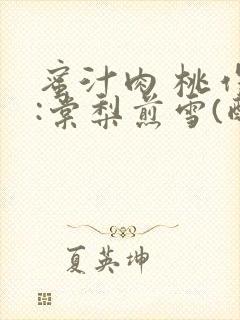 蜜汁肉桃作
:棠梨煎雪(酥
夏英坤